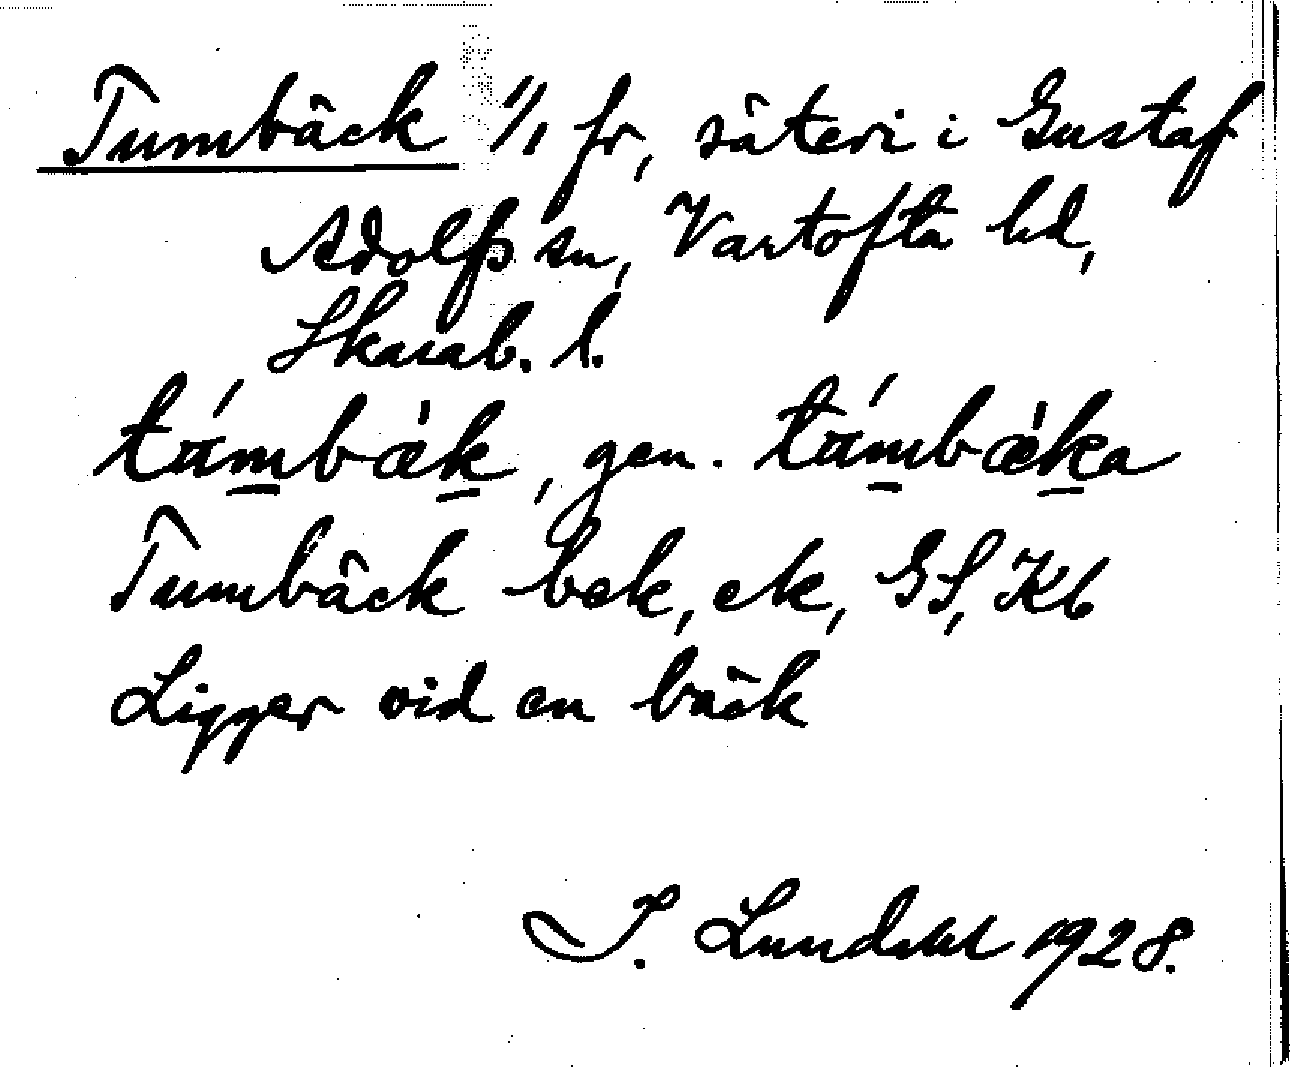 Tumbäck 1/1 fr, säteri i Gustaf
Adolfs sn, Vartofta hd,
Skarab. l.
támbæ̀k, gen. támbæ̀ka
Tumbäck bek, ek, GS, Kb
Ligger vid en bäck
I. Lundahl 1928.